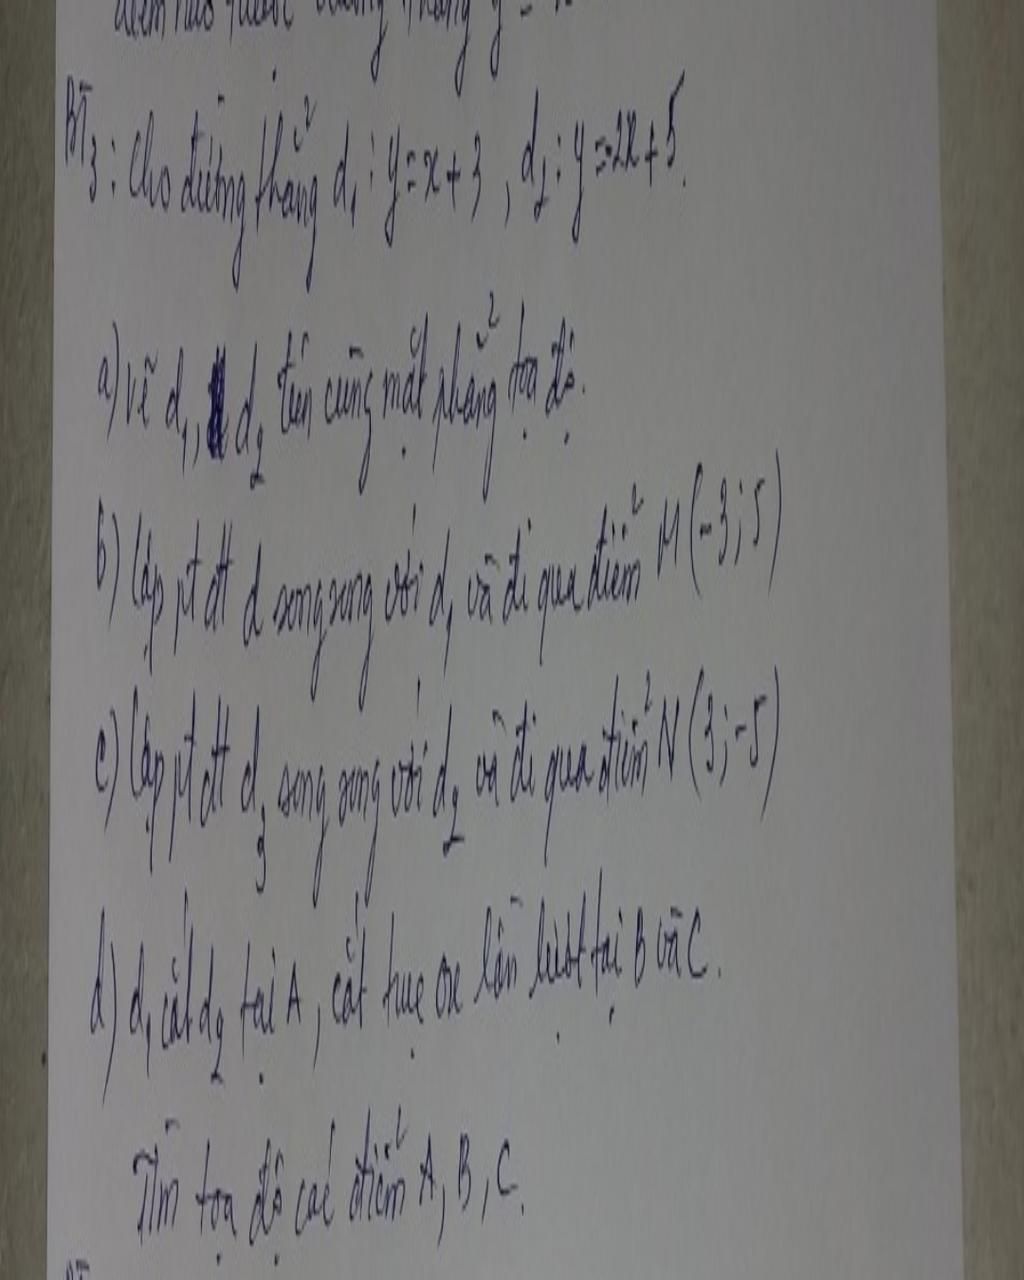 điểm nào thuộc đường thẳng y =
BT3: Cho đường thẳng d₁: y = x + 3, d₂: y = -2x + 5.
a) Vẽ d₁, d₂ trên cùng mặt phẳng tọa độ.
b) Lập pt đt d song song với d₁ và đi qua điểm M(-3; 5)
c) Lập pt đt d₃ song song với d₂ và đi qua điểm N(3; -5)
d) d₁ cắt d₂ tại A, cắt trục ox lần lượt tại B và C.
Tìm tọa độ các điểm A, B, C.
BT